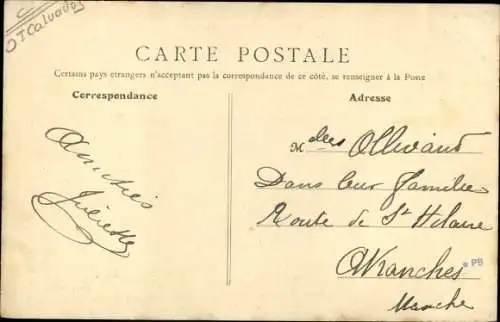 C
OT Calvados
CARTE POSTALE
Certains pays etrangers n'acceptant pas la correspondance de ce côté, se renseigner à la Poste
Correspondance
Adresse
Amitiés
Juliette
Mdes Ollivaud
Dans leur famille
Route de St Hilaire
Avranches
PB
Manche